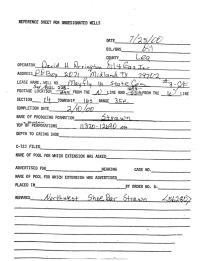 REFERENCE SHEET FOR UNDESIGNATED WELLS
DATE 7/25/00
OIL/GAS
COUNTY Lea
OPERATOR David H Arrington Oil & Gas Inc
ADDRESS P.O. Box 2071 Midland TX 79702
LEASE NAME, WELL NO. Mayfly 14 State Com #
FOOTAGE LOCATION FROM THE LINE AND FROM THE LINE
SECTION 14 TOWNSHIP 16S RANGE 35E
COMPLETION DATE
NAME OF PRODUCING FORMATION Strawn
TOP OF PERFORATIONS
DEPTH TO CASING SHOE
C-123 FILED
NAME OF POOL FOR WHICH EXTENSION HAS ASKED
ADVERTISED FOR HEARING CASE NO.
NAME OF POOL FOR WHICH EXTENSION WAS ADVERTISED
PLACED IN BY ORDER NO. R-
REMARKS Northwest Shoe Bar Strawn